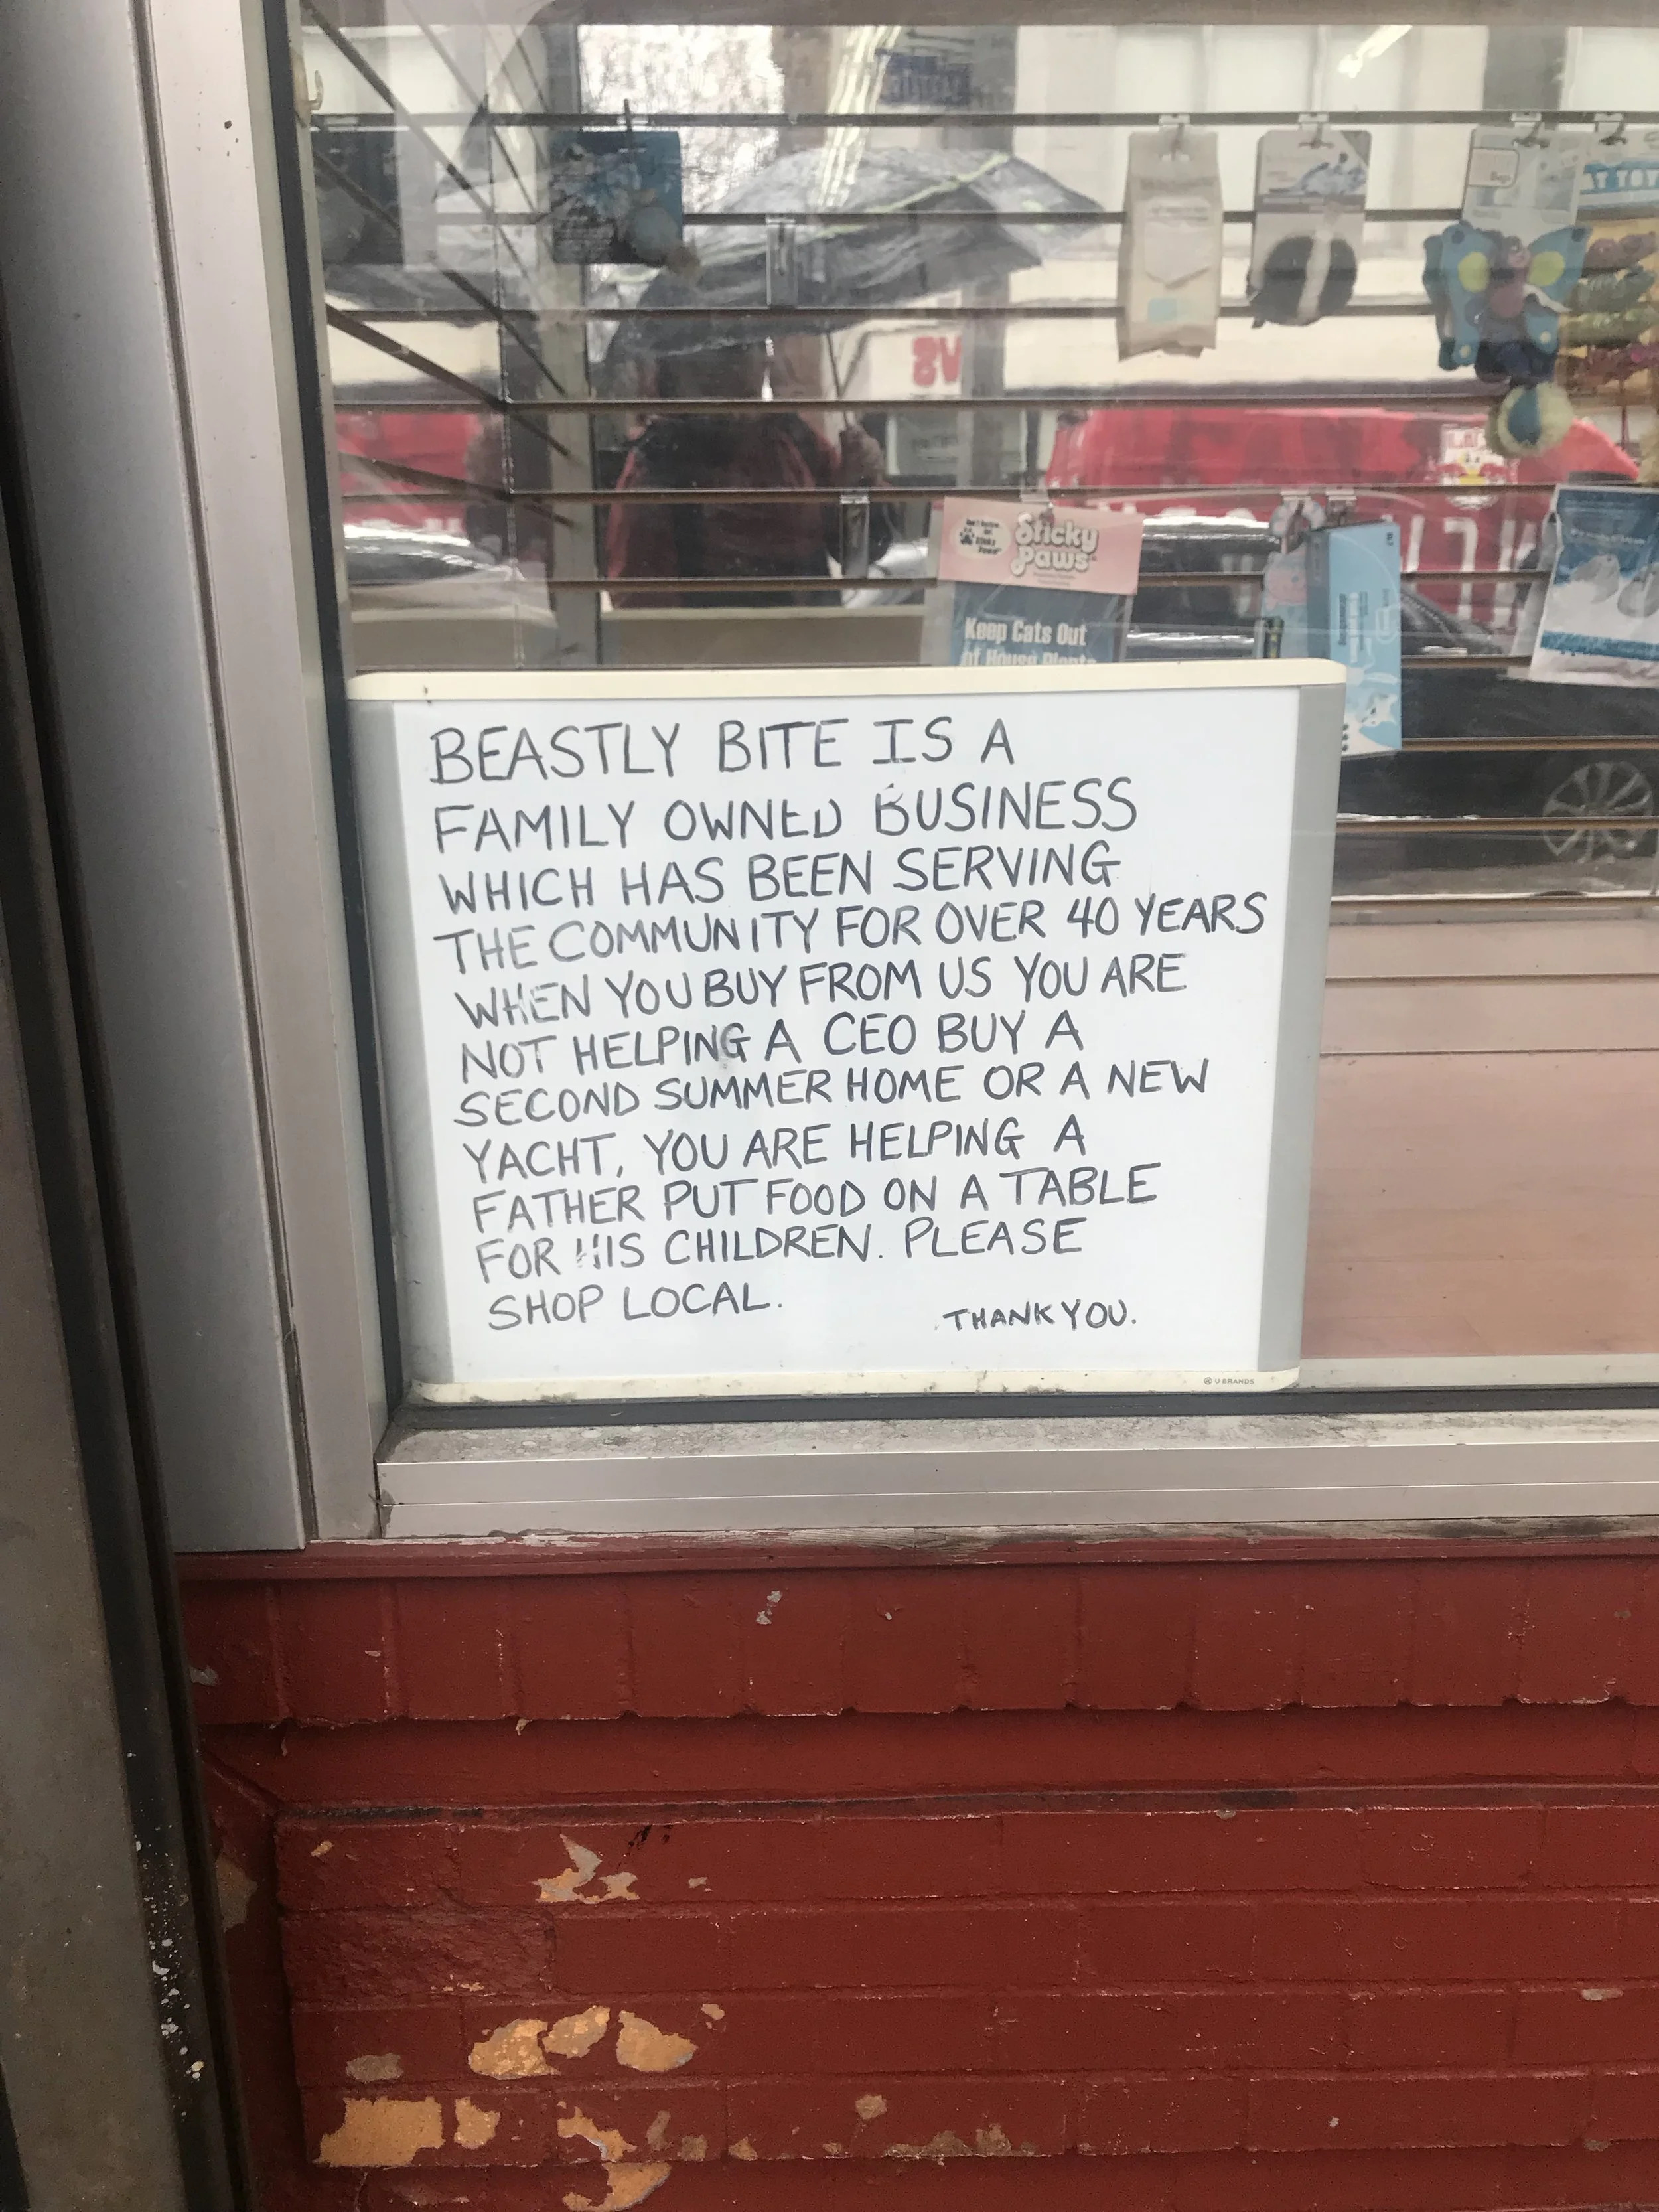 Sticky
Paws
Keep Cats Out
of House Plants
BEASTLY BITE IS A
FAMILY OWNED BUSINESS
WHICH HAS BEEN SERVING
THE COMMUNITY FOR OVER 40 YEARS
WHEN YOU BUY FROM US YOU ARE
NOT HELPING A CEO BUY A
SECOND SUMMER HOME OR A NEW
YACHT, YOU ARE HELPING A
FATHER PUT FOOD ON A TABLE
FOR HIS CHILDREN. PLEASE
SHOP LOCAL.
THANK YOU.
U BRANDS